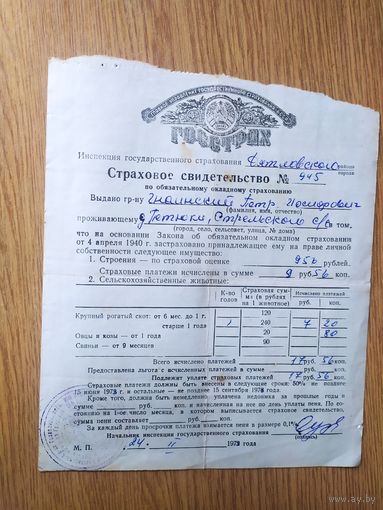 ГЛАВНОЕ УПРАВЛЕНИЕ ГОСУДАРСТВЕННОГО СТРАХОВАНИЯ
ГОССТРАХ
Инспекция государственного страхования Дятловского района
города
Страховое свидетельство № 945
по обязательному окладному страхованию
Выдано гр-ну Петр
(фамилия, имя, отчество)
проживающему д. Стрельского с/с в том,
(город, село, сельсовет, улица, № дома)
что на основании Закона об обязательном окладном страховании
от 4 апреля 1940 г. застраховано принадлежащее ему на праве личной
собственности следующее имущество:
1. Строения — по страховой оценке 956 рублей.
Страховые платежи исчислены в сумме 9 руб. 56 коп.
2. Сельскохозяйственные животные:
К-во голов
Страховая сумма (в рублях на 1 животное)
Исчислено платежей
руб. коп.
Крупный рогатый скот: от 6 мес. до 1 г. 120
старше 1 года 1 240 7 20
Овцы и козы — от 1 года 20 80
Свиньи — от 9 месяцев 90
Всего исчислено платежей 17 руб. 56 коп.
Предоставлена льгота с исчисленных платежей в сумме руб. коп.
Подлежит уплате страховых платежей 17 руб. 56 коп.
Страховые платежи должны быть внесены в следующие сроки: 50% не позднее
15 июня 1973 г. и остальные — не позднее 15 сентября 1973 года.
Кроме того, должна быть немедленно уплачена недоимка за прошлые годы в
сумме руб. коп. и начисленная на нее по день платежа пеня. По состоянию
на 1-ое число месяца, в котором выписывается страховое свидетельство,
сумма пени составляет руб. коп.
За каждый день просрочки платежа взимается пеня в размере 0,1%.
Начальник инспекции государственного страхования
(подпись)
М. П. 24 II 1973 года
ay.by